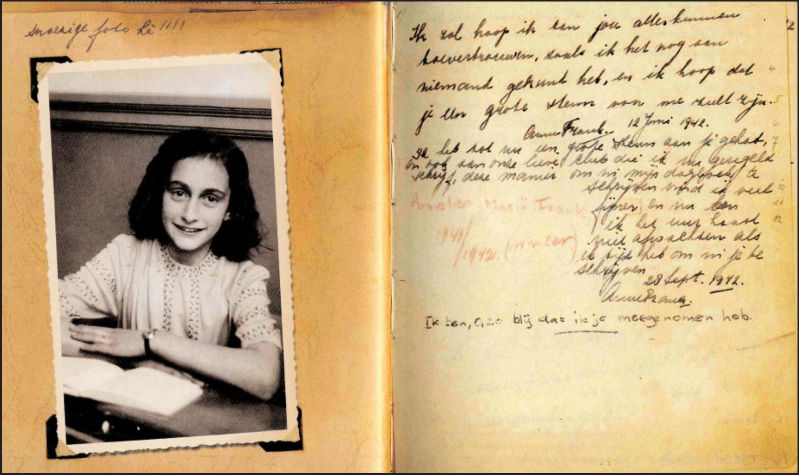 snoezige foto hé !!!!
2
Ik zal hoop ik aan jou alles kunnen
toevertrouwen, zoals ik het nog aan
niemand gekund heb, en ik hoop dat
je een grote steun voor me zult zijn.
Anne Frank. 12 Juni 1942.
Ik heb tot nu een grote steun aan je gehad,
en ook aan onze lieve club die ik nu geregeld
schrijf, deze manier om in mijn dagboek te
schrijven vind ik veel
fijner en nu kan
ik het uur haast
niet afwachten als
ik tijd heb om in je te
schrijven.
28 Sept. 1942.
Anne Frank.
Annelies Marie Frank
1941/
1942.
Ik ben, o, zo blij dat ik je meegenomen heb.